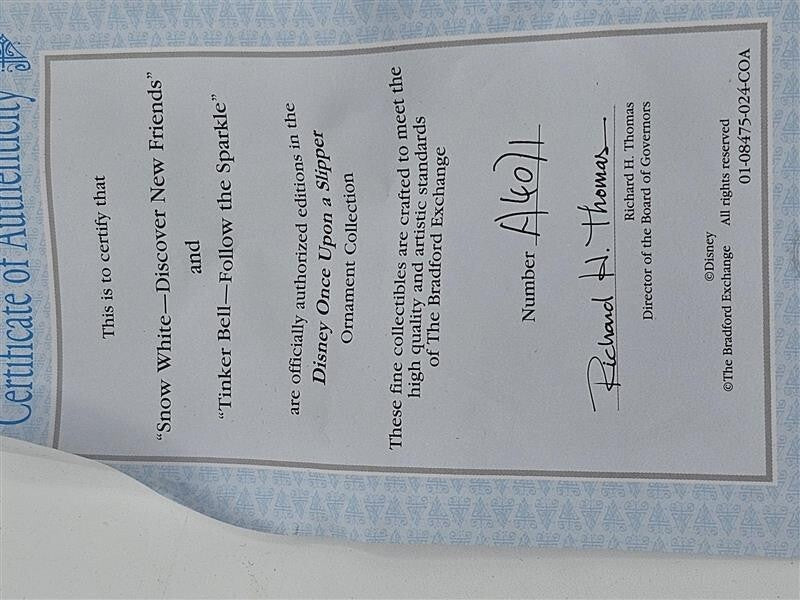 Certificate of Authenticity
This is to certify that
“Snow White—Discover New Friends”
and
“Tinker Bell—Follow the Sparkle”
are officially authorized editions in the
Disney Once Upon a Slipper
Ornament Collection
These fine collectibles are crafted to meet the
high quality and artistic standards
of The Bradford Exchange
Number A4071
Richard H. Thomas
Richard H. Thomas
Director of the Board of Governors
©Disney
©The Bradford Exchange All rights reserved
01-08475-024-COA